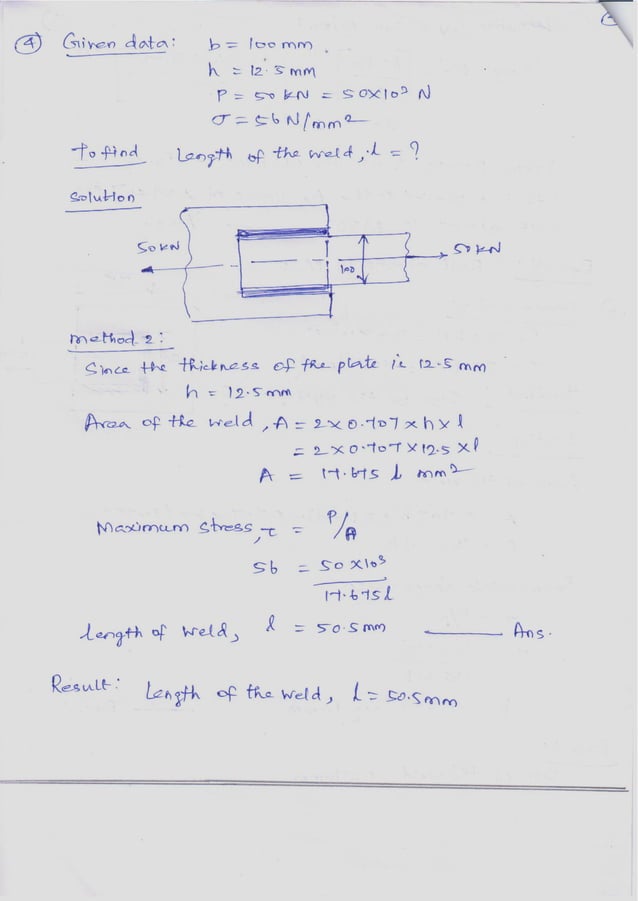 ④ Given data: b = 100 mm.
h = 12.5 mm
P = 50 KN = 50×10³ N
σ = 56 N/mm²
To find Length of the weld, l = ?
Solution
50 KN
50 KN
100
method 2:
Since the thickness of the plate is 12.5 mm
h = 12.5 mm
Area of the weld, A = 2×0.707×h×l
= 2×0.707×12.5×l
A = 17.675 l mm²
Maximum stress, τ = P/A
56 = 50×10³
17.675 l
length of weld, l = 50.5 mm ——— Ans.
Result: Length of the weld, l = 50.5mm